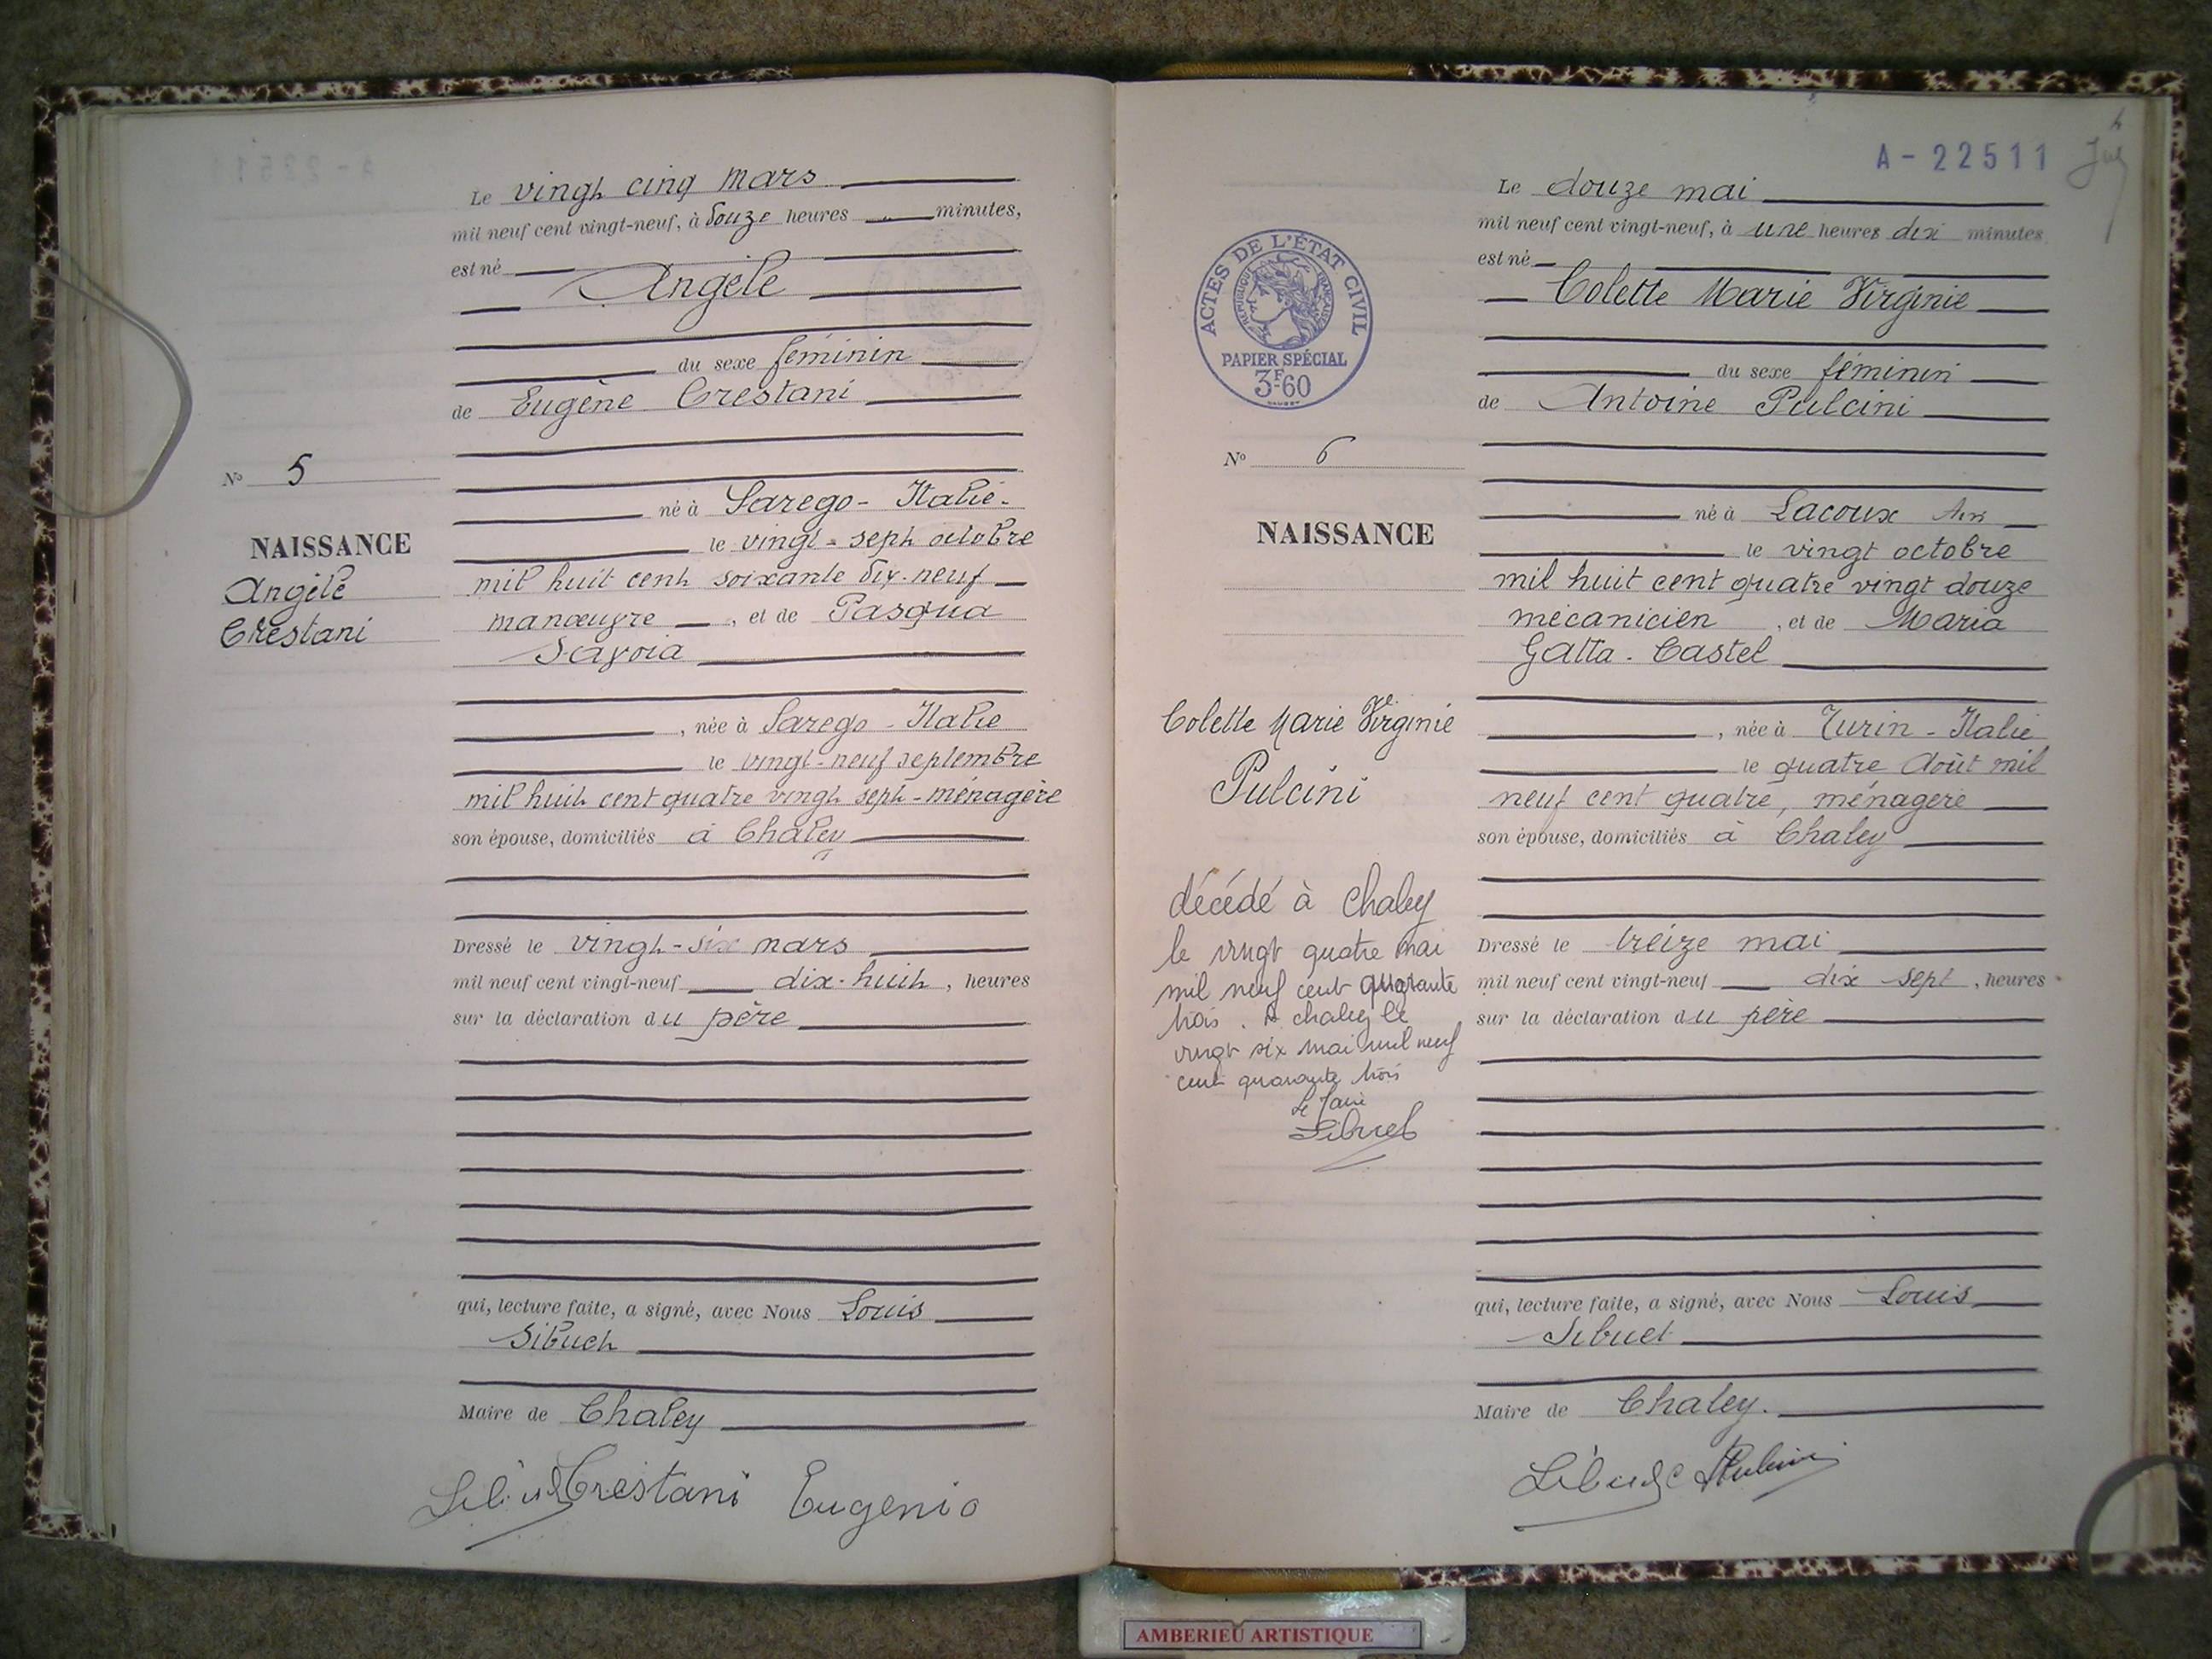 Le vingt cinq mars
mil neuf cent vingt-neuf, à douze heures " minutes,
est né
Angèle
du sexe féminin
de Eugène Crestani
né à Sarego - Italie -
le vingt - sept octobre
mil huit cent soixante dix-neuf
manœuvre , et de Pasqua
Savoia
, née à Sarego - Italie
le vingt-neuf septembre
mil huit cent quatre vingt sept - ménagère
son épouse, domiciliés à Chaley
Dressé le vingt-six mars
mil neuf cent vingt-neuf dix-huit , heures
sur la déclaration du père
qui, lecture faite, a signé, avec Nous Louis
Sibuet
Maire de Chaley
Sibuet Crestani Eugenio
N° 5
NAISSANCE
Angèle
Crestani
A - 22511
Le douze mai
mil neuf cent vingt-neuf, à une heures dix minutes
est né
Colette Marie Virginie
du sexe féminin
de Antoine Pulcini
né à Lacoux Ain
le vingt octobre
mil huit cent quatre vingt douze
mécanicien , et de Maria
Gatta - Castel
, née à Turin - Italie
le quatre Août mil
neuf cent quatre, ménagère
son épouse, domiciliés à Chaley
Dressé le treize mai
mil neuf cent vingt-neuf dix sept , heures
sur la déclaration du père
qui, lecture faite, a signé, avec Nous Louis
Sibuet
Maire de Chaley.
Sibuet Pulcini
ACTES DE L'ÉTAT CIVIL
RÉPUBLIQUE FRANÇAISE
PAPIER SPÉCIAL
3F60
N° 6
NAISSANCE
Colette Marie Virginie
Pulcini
décédé à Chaley
le vingt quatre mai
mil neuf cent quarante
trois . A chaley le
vingt six mai mil neuf
cent quarante trois
Le Maire
Sibuet
AMBERIEU ARTISTIQUE